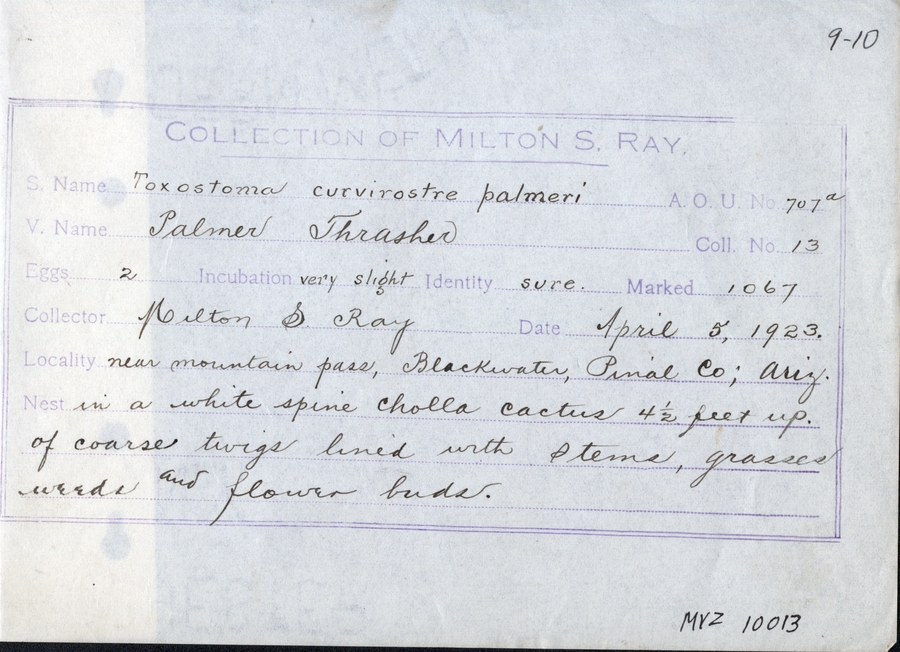 9-10
COLLECTION OF MILTON S. RAY.
S. Name Toxostoma curvirostre palmeri A. O. U. No. 707a
V. Name Palmer Thrasher Coll. No. 13
Eggs 2 Incubation very slight Identity sure. Marked 1067
Collector Milton S. Ray Date April 5, 1923.
Locality near mountain pass, Blackwater, Pinal Co; Ariz.
Nest in a white spine cholla cactus 4½ feet up.
of coarse twigs lined with stems, grasses
weeds and flower buds.
MVZ 10013